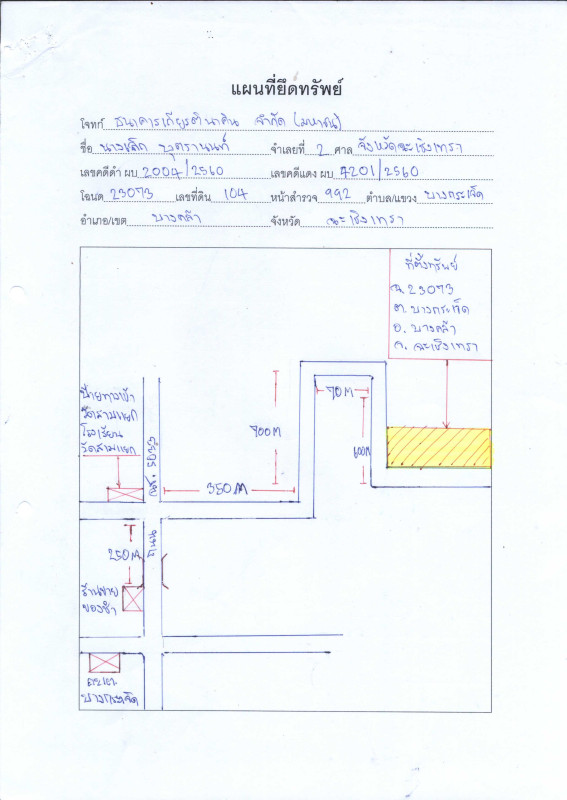 แผนที่ยึดทรัพย์
โจทก์ ธนาคารเกียรตินาคิน จำกัด (มหาชน)
ชื่อ นาง บุตรานนท์ จำเลยที่ 2 ศาล จังหวัดฉะเชิงเทรา
เลขคดีดำ ผบ 2004/2560 เลขคดีแดง ผบ 7201/2560
โฉนด 23073 เลขที่ดิน 104 หน้าสำรวจ 992 ตำบล/แขวง บางกระเจ็ด
อำเภอ/เขต บางคล้า จังหวัด ฉะเชิงเทรา
ที่ตั้งทรัพย์
ฉ. 23073
ต. บางกระเจ็ด
อ. บางคล้า
จ. ฉะเชิงเทรา
ป้ายทางเข้า
วัดสามแยก
โรงเรียน
วัดสามแยก
ฉช. 5033
700M
70M
600M
350M
ถนน
250M
ร้านขาย
ของชำ
อบต.
บางกระเจ็ด